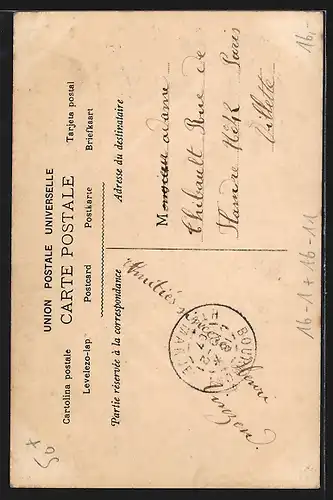 UNION POSTALE UNIVERSELLE
CARTE POSTALE
Cartolina postale Tarjeta postal
Levelezo-lap Postcard Postkarte Briefkaart
Partie réservée à la correspondance
Adresse du destinataire
Amitiés
Madame
Thibault Rue de
Flandre Paris
Villette
16.-
16-1+16-11
50x